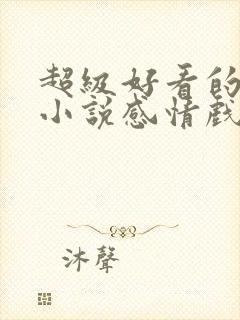 超級好看的
小說感情戲
沐聲